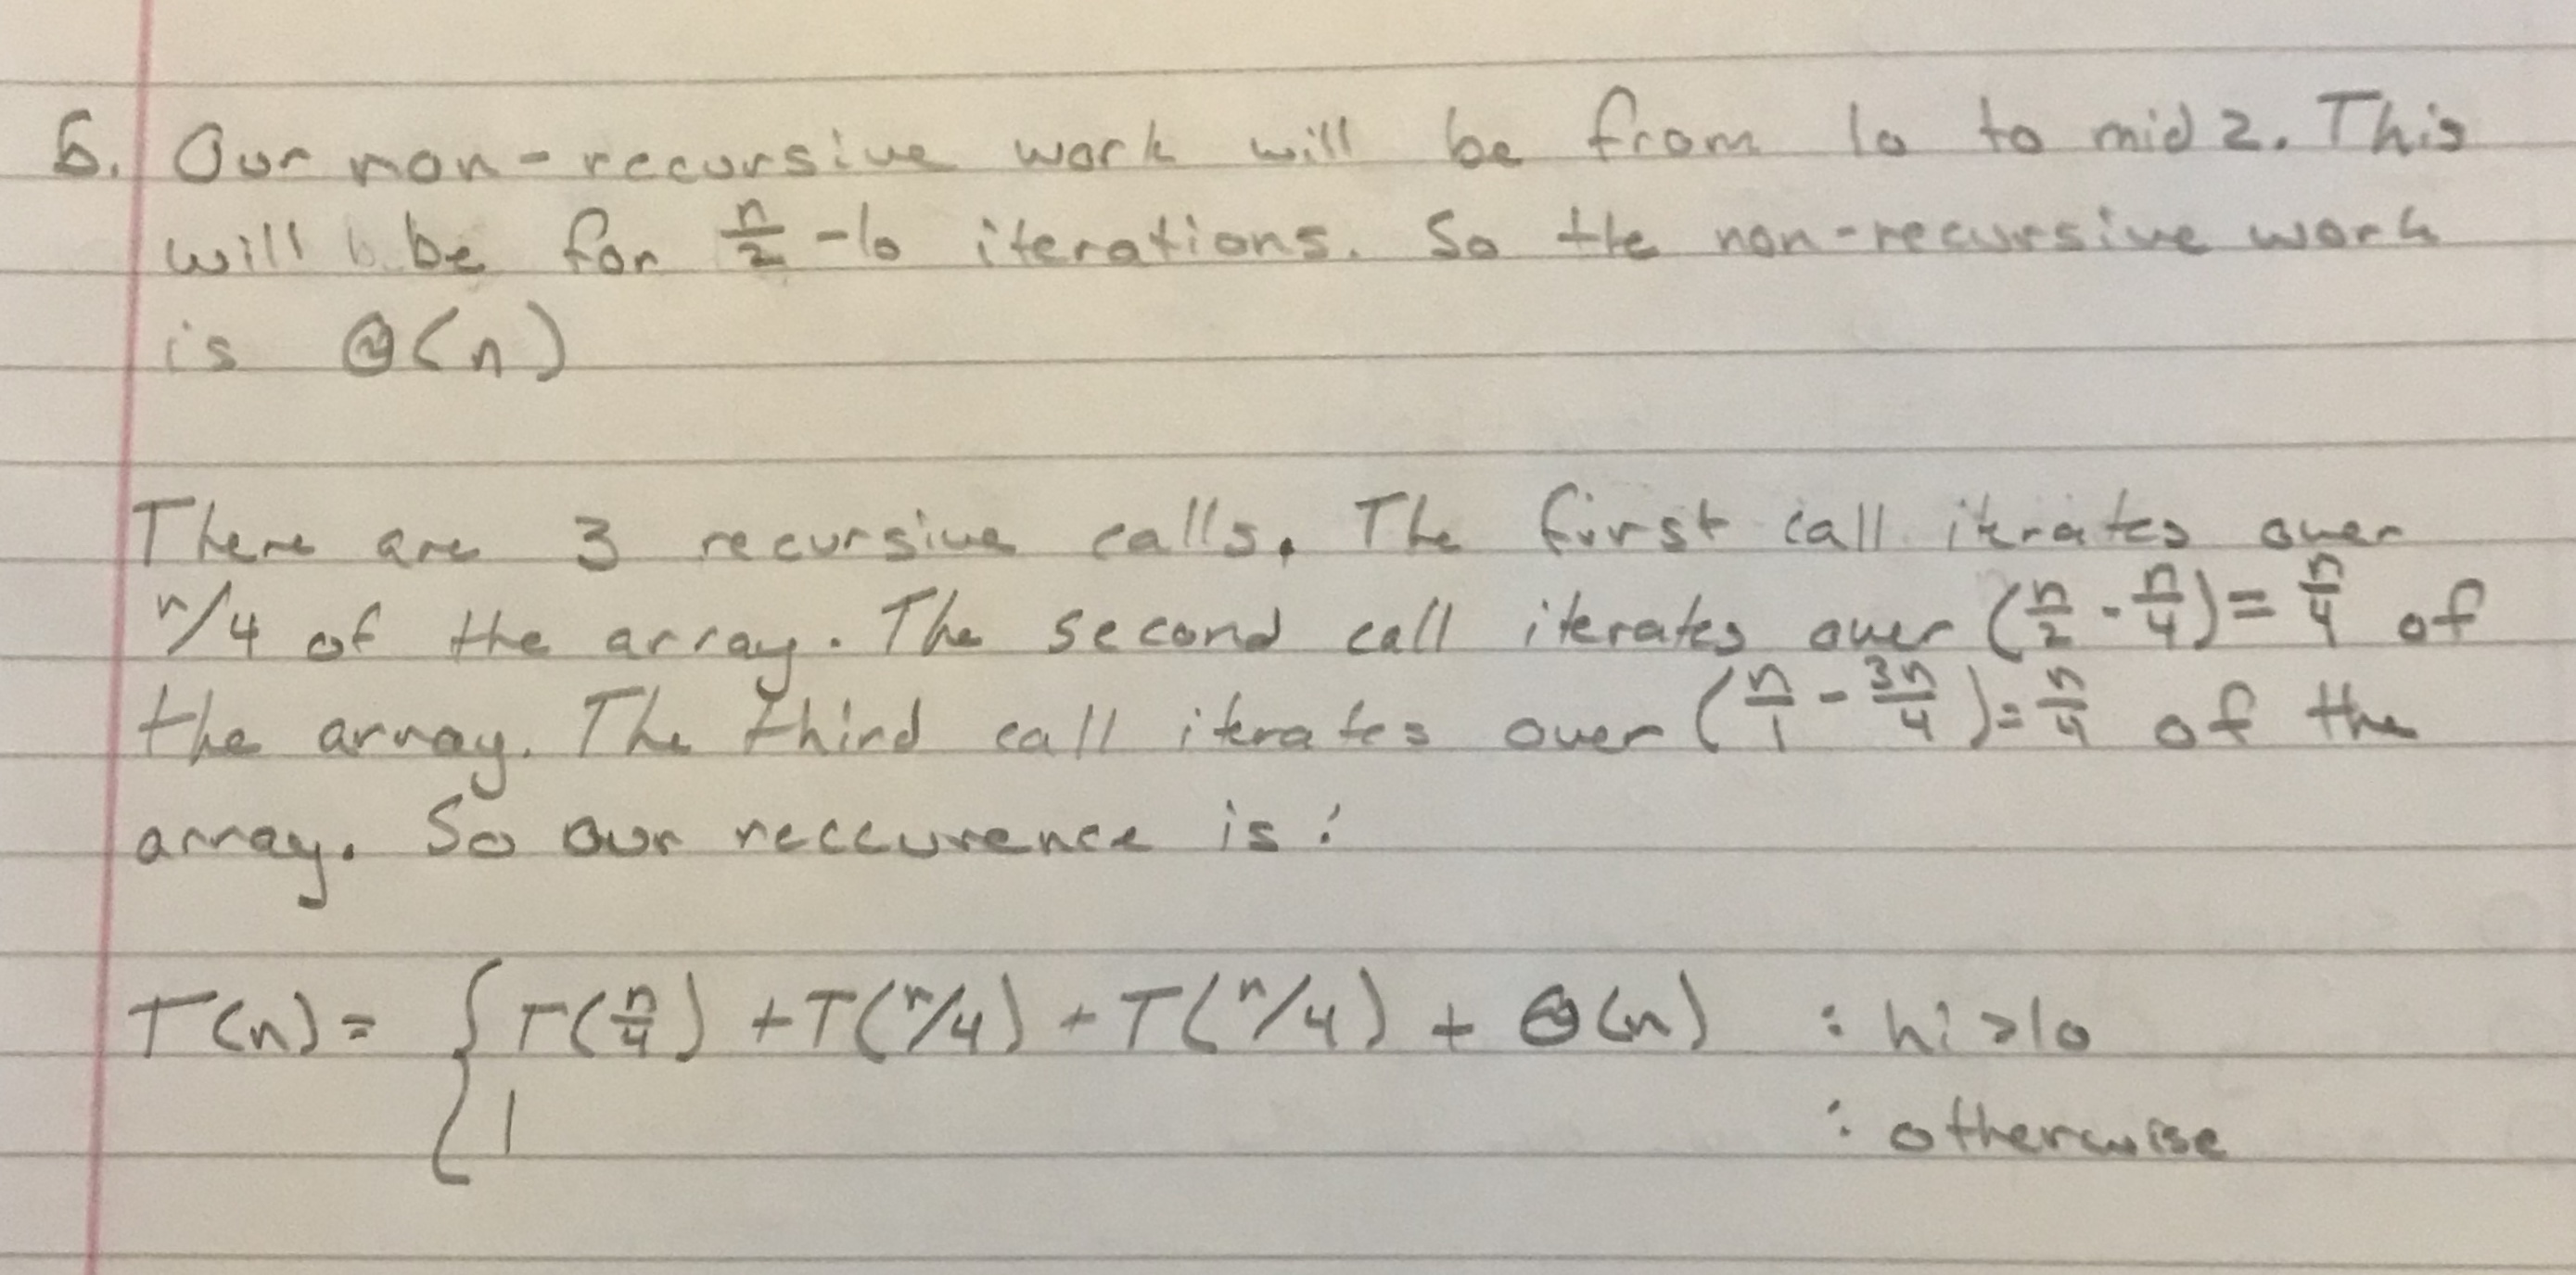 6. Our non-recursive work will be from lo to mid2. This
will be for n/2 - lo iterations. So the non-recursive work
is Θ(n)
There are 3 recursive calls. The first call iterates over
n/4 of the array. The second call iterates over (n/2 - n/4) = n/4 of
the array. The third call iterates over (n/1 - 3n/4) = n/4 of the
array. So our reccurence is:
T(n) = { T(n/4) + T(n/4) + T(n/4) + Θ(n) : hi > lo
1 : otherwise